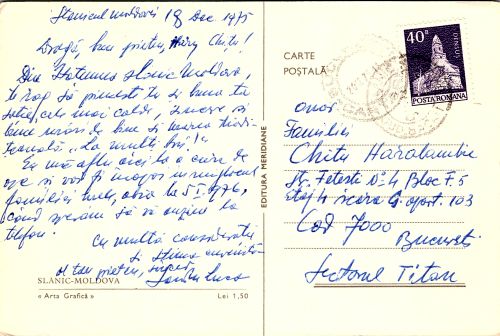 Slanicul moldovei 18 Dec 1975
Dragă, bun prieten, Hary Chitu!
Din Slanic Moldova,
te rog să primesti tu si buna ta
sotie, cele mai calde, sincere si
bune urări de bine si
"La multi ani!"
Eu mă aflu aici la o cură de
ape si voi fi înapoi în
familiei mele, abia la 5 I 1976,
când speram să vă auzim la
telefon.
Cu multă consideratie
si stima
al tau prieten,
SLĂNIC-MOLDOVA
« Arta Grafică » Lei 1,50
EDITURA MERIDIANE
CARTE
POȘTALĂ
40B
DENSUȘ
POSTA ROMANA
Onor
Familiei
Chitu Haralambie
Str. Fetesti No 4 Bloc F. 5
etaj 4 scara G. apart. 103
Cod 7000
București
Sectorul Titan